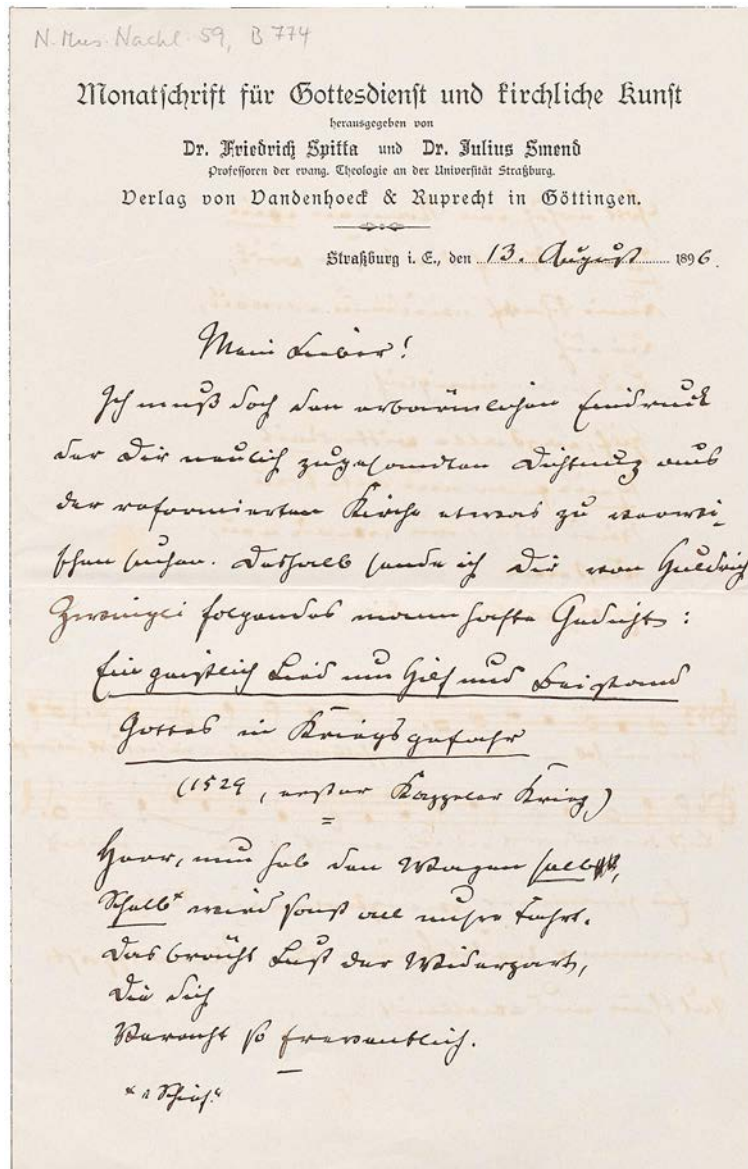 N. Mus. Nachl. 59, B 774
Monatschrift für Gottesdienst und kirchliche Kunst
herausgegeben von
Dr. Friedrich Spitta und Dr. Julius Smend
Professoren der evang. Theologie an der Universität Straßburg.
Verlag von Vandenhoeck & Ruprecht in Göttingen.
Straßburg i. E., den 13. August 1896.
Mein Lieber!
Ich muß doch den erbärmlichen Eindruck
der Dir neulich zugesandten Dichtung aus
der reformierten Kirche etwas zu verwi-
schen suchen. Deshalb sende ich Dir von Huldrich
Zwingli folgendes mannhafte Gedicht:
Ein geistlich Lied um Hilf und Beistand
Gottes in Kriegsgefahr
(1529, erster Kappeler Krieg)
Herr, nun heb den Wagen selb,
Schelb* wird sonst all unsre Fahrt.
Das brächt Lust der Widerpart,
Die Dich
Veracht so freventlich.
* "Schief."